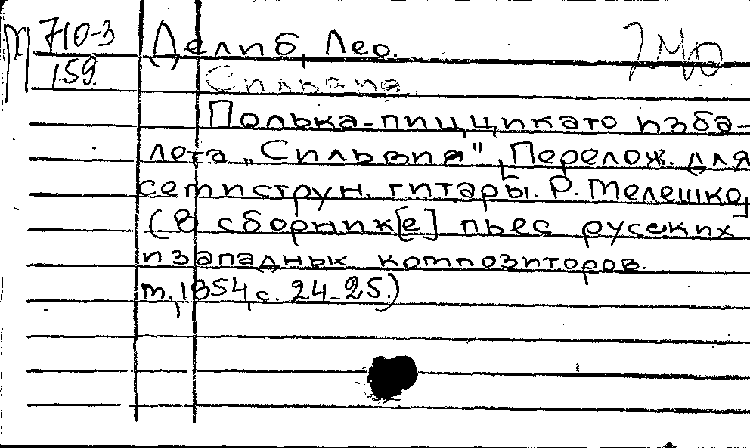 М 710-3
159.
Делиб, Лео.
Сильвия
Полька-пиццикато из ба-
лета „Сильвия". Перелож. для
семиструн. гитары. Р. Мелешко,
(в сборник[е] пьес русских
и западных композиторов.
М., 1954, с. 24-25.)